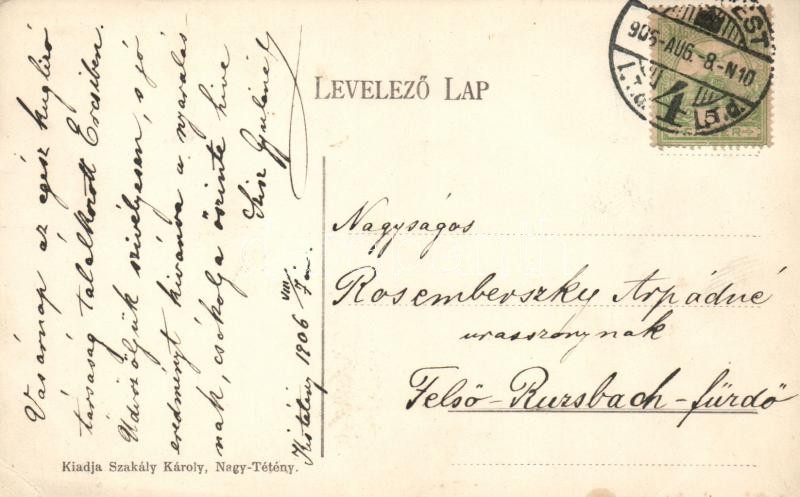 LEVELEZŐ LAP
EST
906-AUG.-8.-N10
4
Vasárnap az egész kugliró
társaság találkozott Ercsiben.
Üdvözöljük szivélyesen, s jó
eredményt kivánva a nyaralás
nak, csókolja őszinte hive
Gyuláné
1906 VIII/7 én.
Nagyságos
Rosemberszky Árpádné
urasszonynak
Felső-Ruzsbach-fürdő
Kiadja Szakály Károly, Nagy-Tétény.